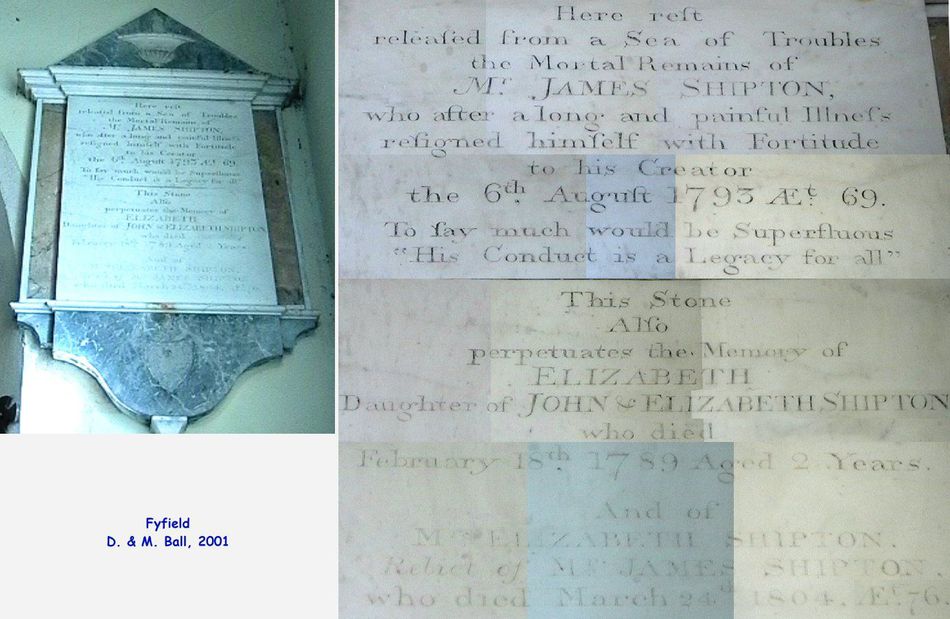 Here reſt
releaſed from a Sea of Troubles
the Mortal Remains of
Mr. JAMES SHIPTON,
who after a long and painful Illneſs
reſigned himſelf with Fortitude
to his Creator
the 6th. Auguſt 1793 Æt. 69.
To ſay much would be Superfluous
"His Conduct is a Legacy for all"
This Stone
Alſo
perpetuates the Memory of
ELIZABETH
Daughter of JOHN & ELIZABETH SHIPTON
who died
February 18th. 1789 Aged 2 Years.
And of
Mrs ELIZABETH SHIPTON,
Relict of Mr. JAMES SHIPTON,
who died March 24th 1804. Æt. 76.
Fyfield
D. & M. Ball, 2001